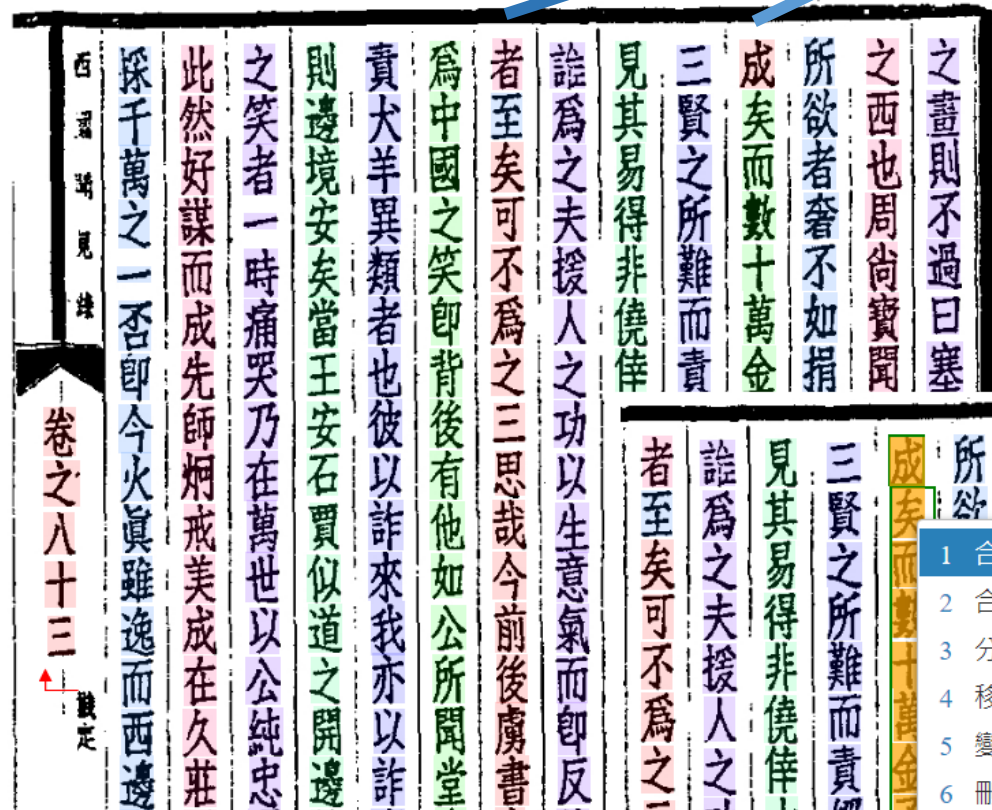 之畫則不過曰塞
之西也周尙寶聞
所欲者奢不如捐
成矣而數十萬金
三賢之所難而責
見其易得非僥倖
詆爲之夫援人之功以生意氣而卽反
者至矣可不爲之三思哉今前後虜書
爲中國之笑卽背後有他如公所聞堂
責犬羊異類者也彼以詐來我亦以詐
則邊境安矣當王安石賈似道之開邊
之笑者一時痛哭乃在萬世以公純忠
此然好謀而成先師炯戒美成在久莊
採千萬之一否卽今火眞雖逸而西邊
西 見
卷之八十三
定
所欲
成矣而數十萬金
三賢之所難而責
見其易得非僥倖
詆爲之夫援人之
者至矣可不爲之
1 合
2 合
3 分
4 移
5 變
6 刪